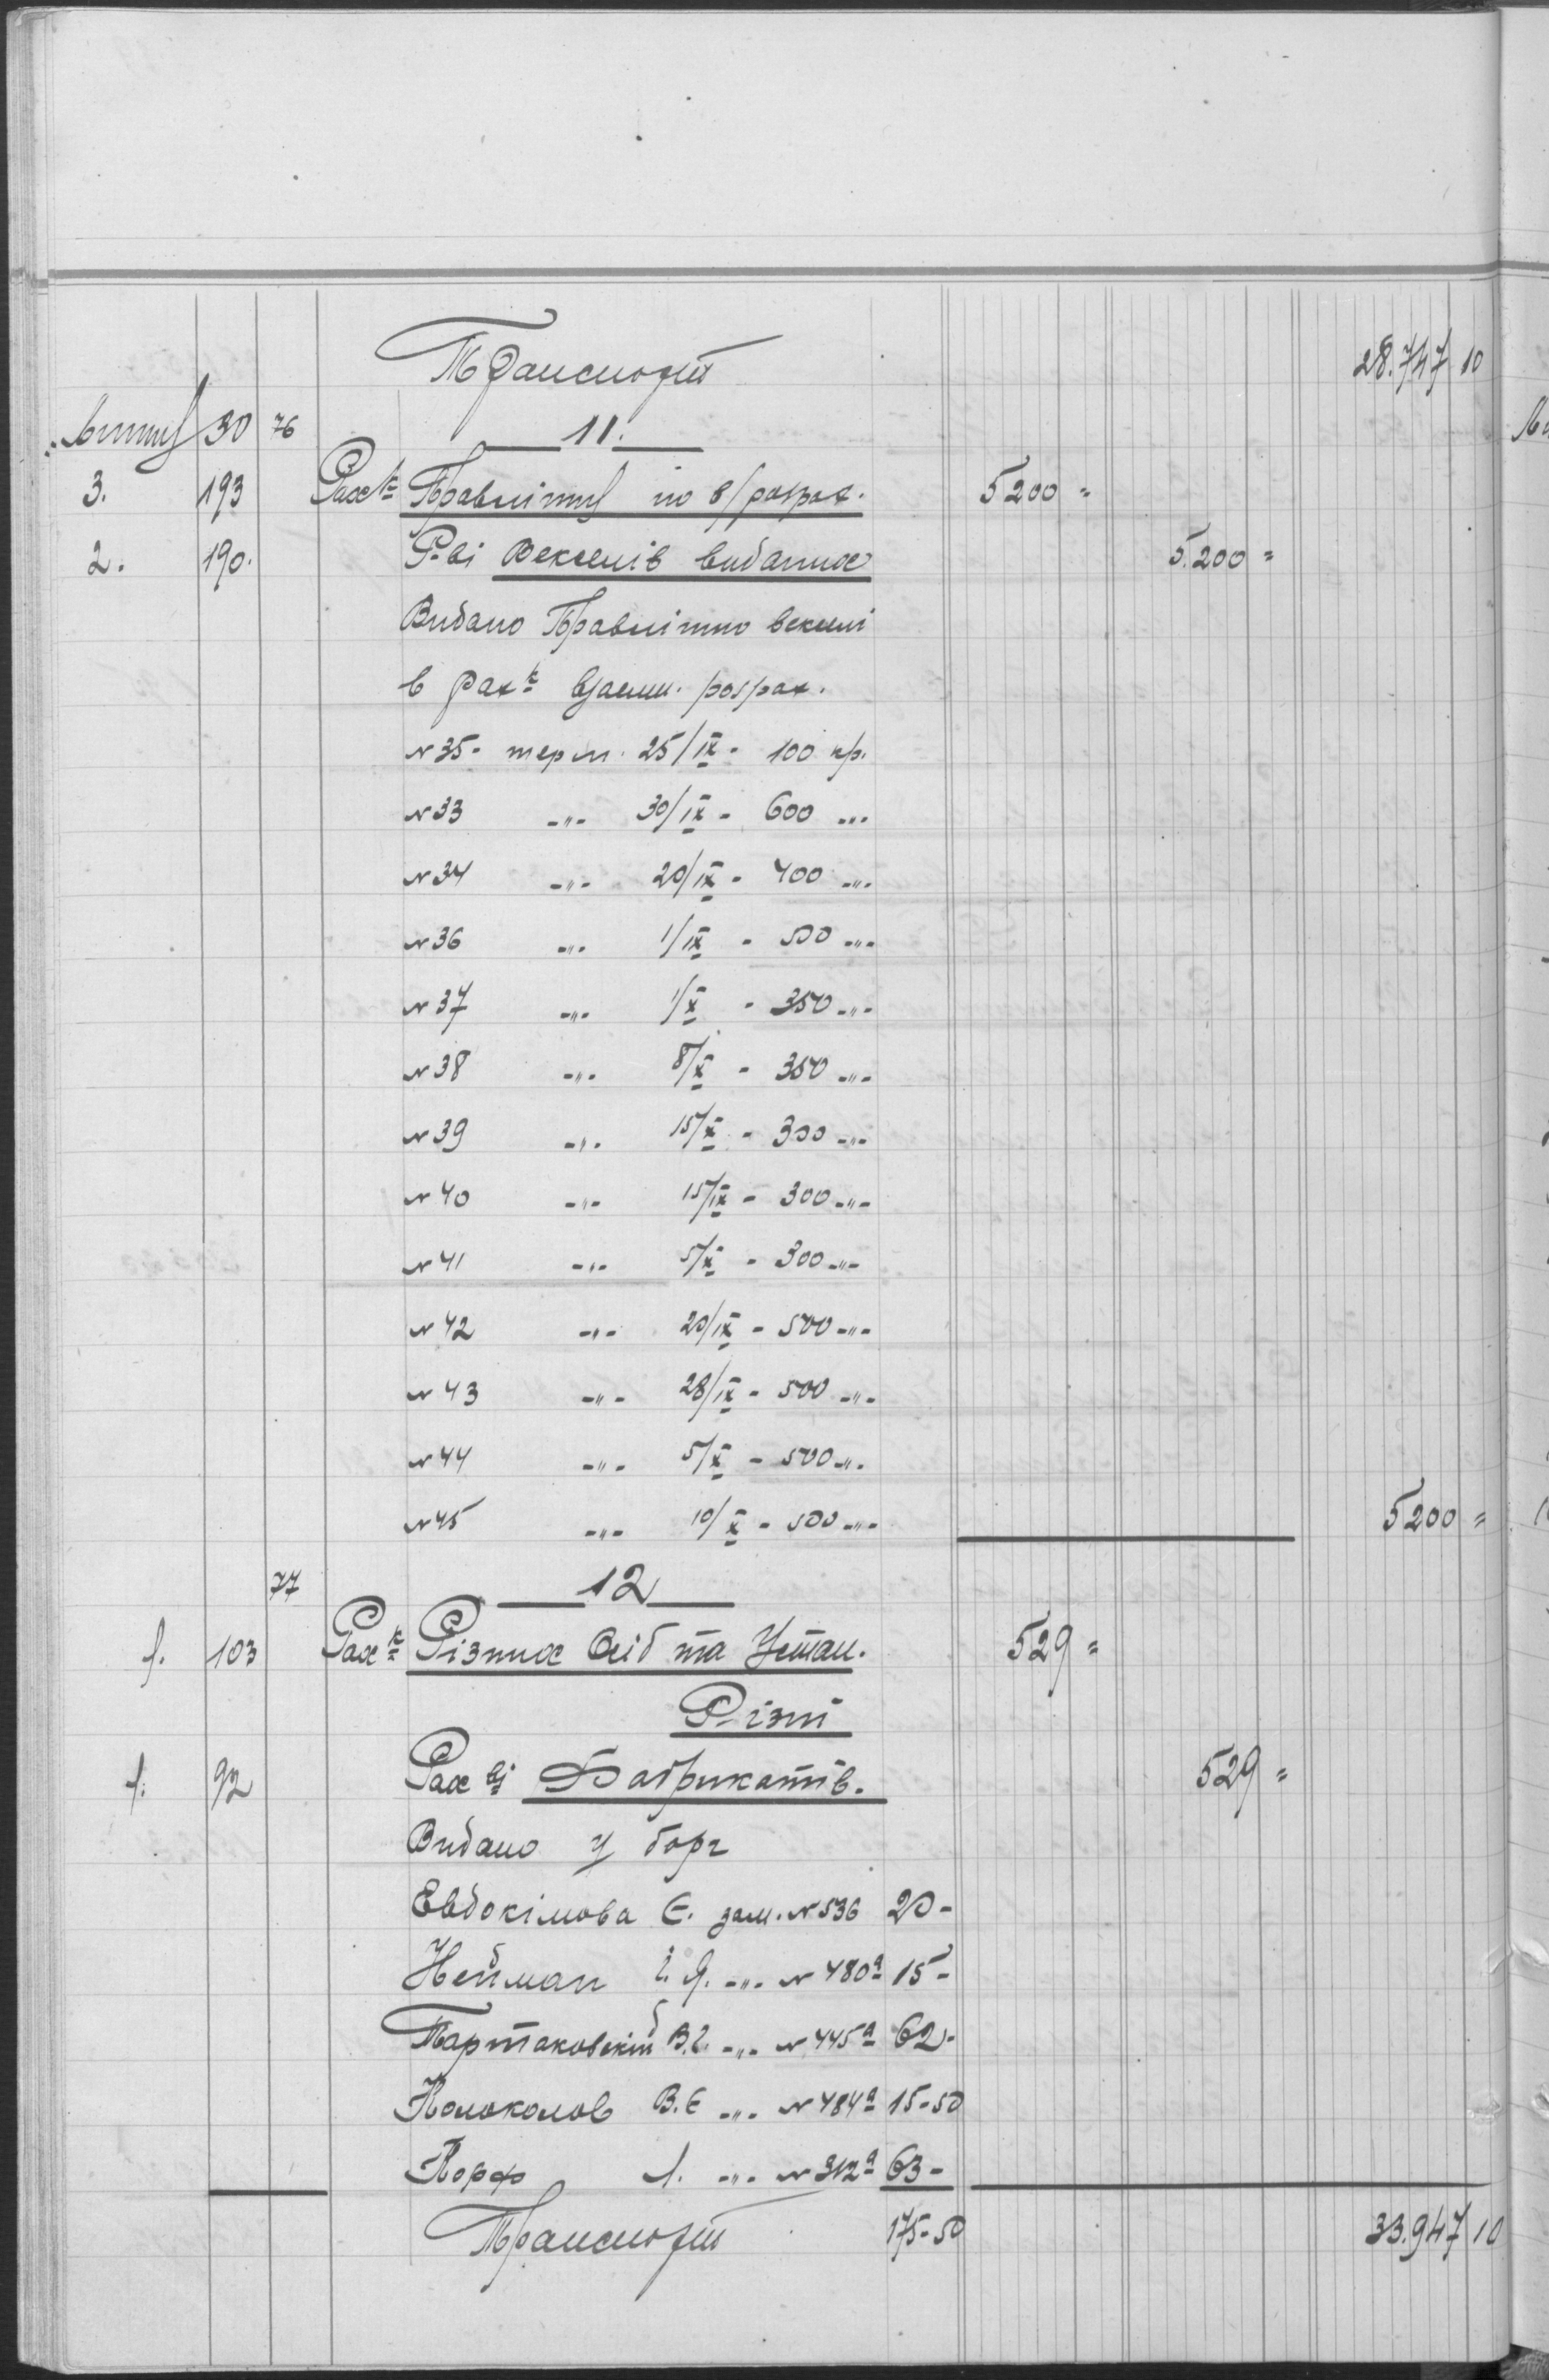 Транспорт 28.747 10
30 76 11.
3. 193 Рах-к Правлінню по в/розрах. 5200 =
2. 190. Р-ві Векселів виданих 5.200 =
Видано Правлінню векселі
в рах-к взаємн. розрах.
№ 35 - терм. 25/IX - 100 кр.
№ 33 -"- 30/IX - 600 -"-
№ 34 -"- 20/IX - 400 -"-
№ 36 -"- 1/IX - 500 -"-
№ 37 -"- 1/X - 350 -"-
№ 38 -"- 8/X - 350 -"-
№ 39 -"- 15/X - 300 -"-
№ 40 -"- 15/IX - 300 -"-
№ 41 -"- 5/X - 300 -"-
№ 42 -"- 20/IX - 500 -"-
№ 43 -"- 28/IX - 500 -"-
№ 44 -"- 5/X - 500 -"-
№ 45 -"- 10/X - 500 -"- 5200 =
77 12
1. 103 Рах-к Різних Осіб та Устан. 529 =
Різні
1. 92 Рах-ві Фабрикатів. 529 =
Видано у борг
Евдокімова Є. зам. № 536 20 -
Нейман І. Я. -"- № 480а 15 -
Партаковскій В. І. -"- № 445а 62 -
Колоколов В. Є -"- № 484а 15 - 50
Корф -"- № 312а 63 -
Транспорт 175 - 50 33.947 10